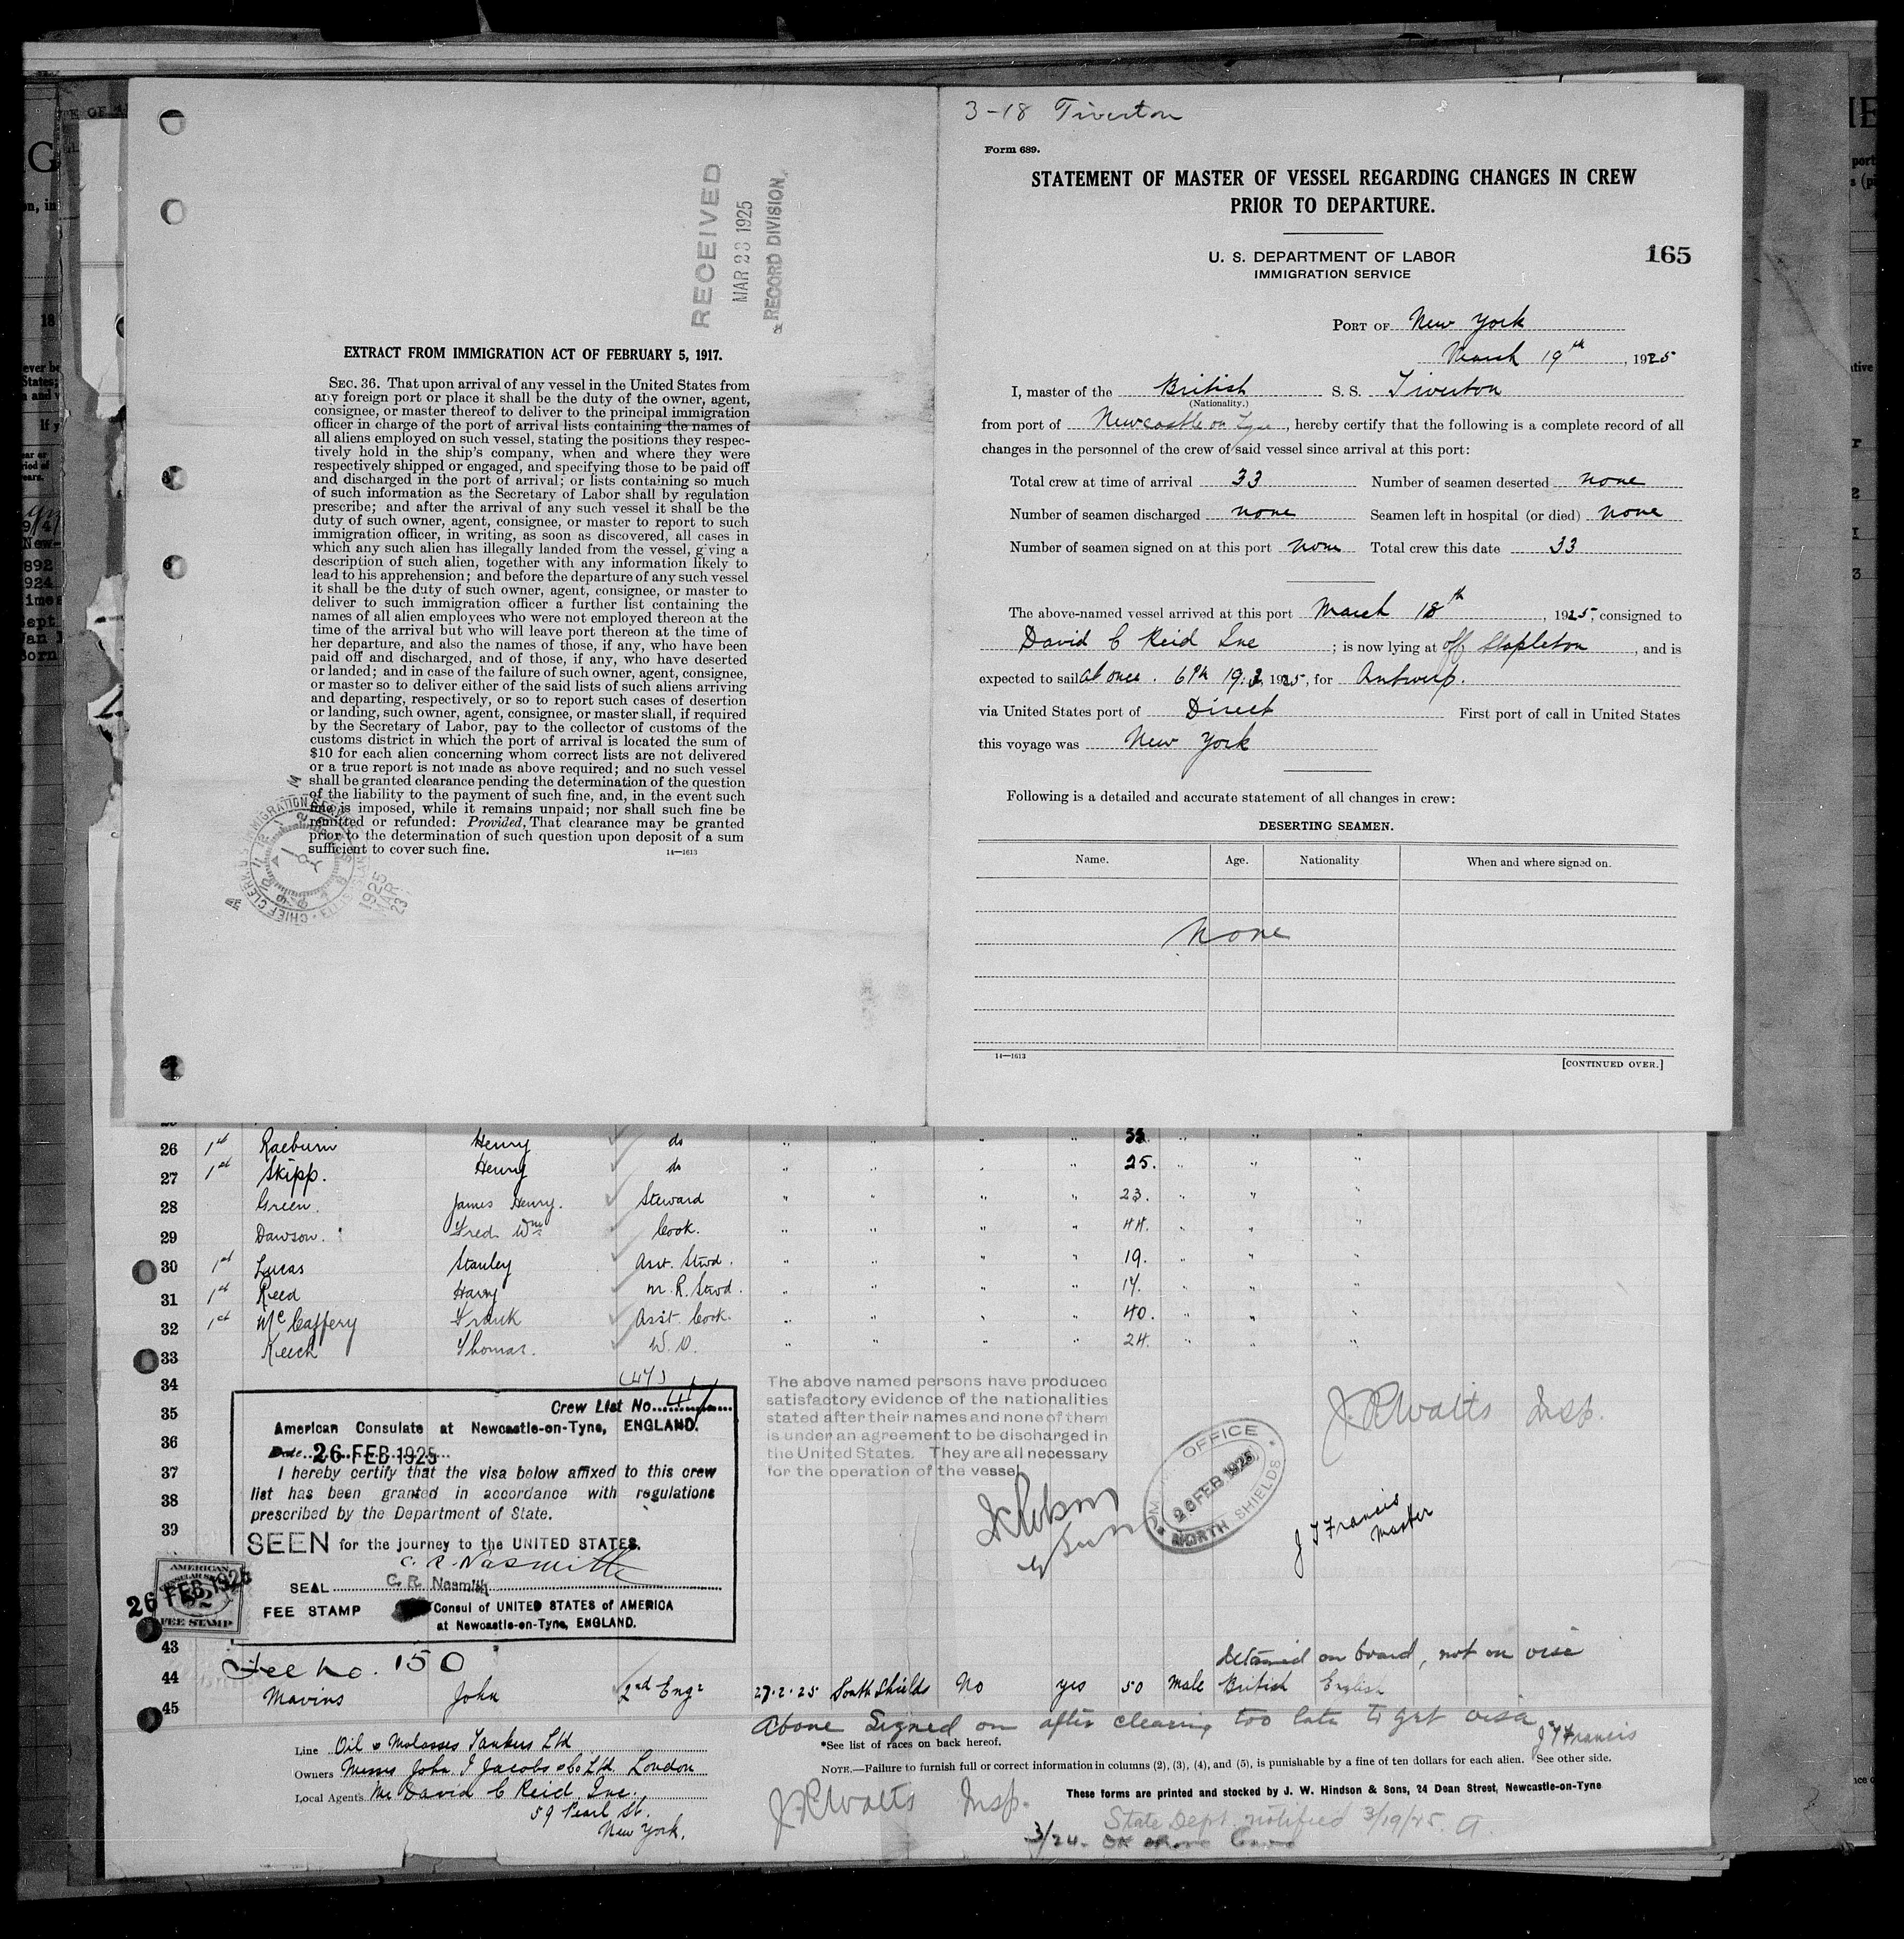 RECEIVED
MAR 23 1925
& RECORD DIVISION.
EXTRACT FROM IMMIGRATION ACT OF FEBRUARY 5, 1917.
SEC. 36. That upon arrival of any vessel in the United States from
any foreign port or place it shall be the duty of the owner, agent,
consignee, or master thereof to deliver to the principal immigration
officer in charge of the port of arrival lists containing the names of
all aliens employed on such vessel, stating the positions they respec-
tively hold in the ship's company, when and where they were
respectively shipped or engaged, and specifying those to be paid off
and discharged in the port of arrival; or lists containing so much
of such information as the Secretary of Labor shall by regulation
prescribe; and after the arrival of any such vessel it shall be the
duty of such owner, agent, consignee, or master to report to such
immigration officer, in writing, as soon as discovered, all cases in
which any such alien has illegally landed from the vessel, giving a
description of such alien, together with any information likely to
lead to his apprehension; and before the departure of any such vessel
it shall be the duty of such owner, agent, consignee, or master to
deliver to such immigration officer a further list containing the
names of all alien employees who were not employed thereon at the
time of the arrival but who will leave port thereon at the time of
her departure, and also the names of those, if any, who have been
paid off and discharged, and of those, if any, who have deserted
or landed; and in case of the failure of such owner, agent, consignee,
or master so to deliver either of the said lists of such aliens arriving
and departing, respectively, or so to report such cases of desertion
or landing, such owner, agent, consignee, or master shall, if required
by the Secretary of Labor, pay to the collector of customs of the
customs district in which the port of arrival is located the sum of
$10 for each alien concerning whom correct lists are not delivered
or a true report is not made as above required; and no such vessel
shall be granted clearance pending the determination of the question
of the liability to the payment of such fine, and, in the event such
fine is imposed, while it remains unpaid; nor shall such fine be
remitted or refunded: Provided, That clearance may be granted
prior to the determination of such question upon deposit of a sum
sufficient to cover such fine.
14—1613
1925
MAR
23
3-18 Tiverton
Form 689.
STATEMENT OF MASTER OF VESSEL REGARDING CHANGES IN CREW
PRIOR TO DEPARTURE.
U. S. DEPARTMENT OF LABOR
IMMIGRATION SERVICE
165
PORT OF New York
March 19th, 1925
I, master of the British S. S. Tiverton
(Nationality.)
from port of Newcastle on Tyne, hereby certify that the following is a complete record of all
changes in the personnel of the crew of said vessel since arrival at this port:
Total crew at time of arrival 33 Number of seamen deserted none
Number of seamen discharged none Seamen left in hospital (or died) none
Number of seamen signed on at this port none Total crew this date 33
The above-named vessel arrived at this port March 18th, 1925, consigned to
David C Reid Inc; is now lying at off Stapleton, and is
expected to sail at once. 19.3, 1925, for Antwerp.
via United States port of Direct First port of call in United States
this voyage was New York
Following is a detailed and accurate statement of all changes in crew:
DESERTING SEAMEN.
Name. Age. Nationality When and where signed on.
None
14—1613 [CONTINUED OVER.]
26 1st Raeburn Henry do " " " " " " "
27 1st Skipp. Henry do " " " " 25. " " "
28 Green. James Henry. Steward " " " " 23. " " "
29 Dawson. Fred Wm Cook. " " " " 44. " " "
30 1st Lucas Stanley Asst. Stwd. " " " " 19. " " "
31 1st Reed Harry M. R. Stwd. " " " " 17. " " "
32 1st McCaffery Frank Asst. Cook. " " " " 40. " " "
33 Keech Thomas. W. O. " " " " 24. " " "
34
35
36
37
38
39
43
44
45
Crew List No.
American Consulate at Newcastle-on-Tyne, ENGLAND.
Date 26 FEB 1925
I hereby certify that the visa below affixed to this crew
list has been granted in accordance with regulations
prescribed by the Department of State.
SEEN for the journey to the UNITED STATES.
C. R. Nasmith
SEAL C. R. Nasmith
FEE STAMP Consul of UNITED STATES of AMERICA
at Newcastle-on-Tyne, ENGLAND.
26 FEB 1925
AMERICAN
CONSULAR SERVICE
FEE STAMP
The above named persons have produced
satisfactory evidence of the nationalities
stated after their names and none of them
is under an agreement to be discharged in
the United States. They are all necessary
for the operation of the vessel
OFFICE
26 FEB 1925
NORTH SHIELDS
J. R. Watts Insp.
J T Francis
Master
Fee No. 150
Detained on board, not on visé
Mavins John 2nd Engr 27.2.25 South Shields No yes 50 Male British English
Above Signed on after clearing too late to get visa.
J T Francis
*See list of races on back hereof.
NOTE.—Failure to furnish full or correct information in columns (2), (3), (4), and (5), is punishable by a fine of ten dollars for each alien. See other side.
These forms are printed and stocked by J. W. Hindson & Sons, 24 Dean Street, Newcastle-on-Tyne
Line Oil & Molasses Tankers Ltd
Owners Messrs John I Jacobs & Co Ltd London
Local Agents Mr David C Reid Inc.
59 Pearl St.
New York.
J. R. Watts Insp.
State Dept. notified 3/19/25. A.
3/24. OK